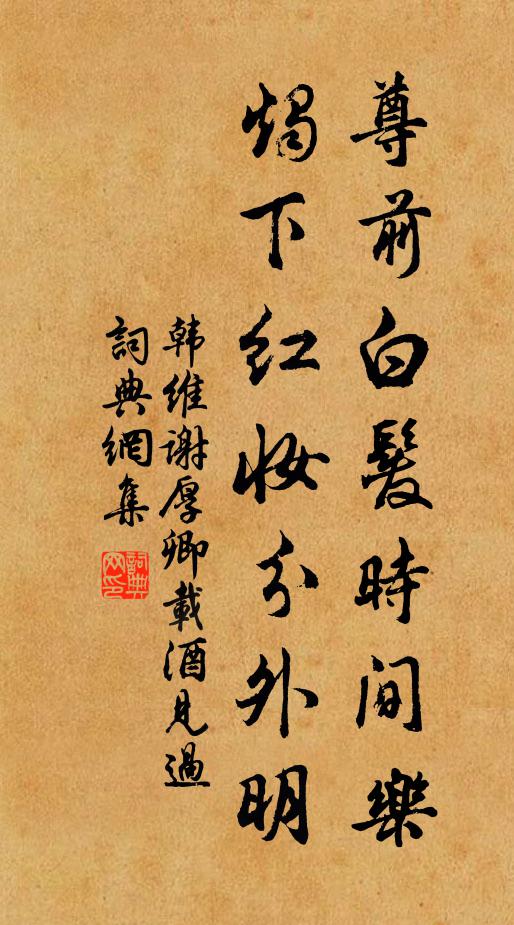 尊前白髮時間樂
燭下红妝分外明
韩維谢厚卿載酒見過
詞典網集
詞典
网印